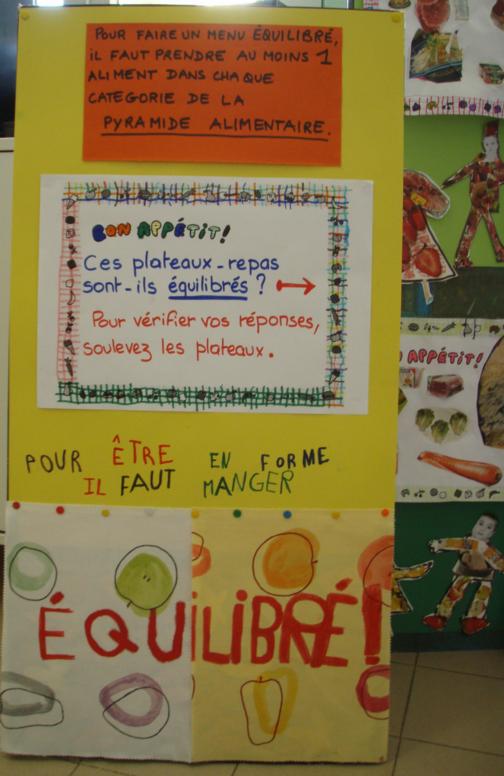 POUR FAIRE UN MENU ÉQUILIBRÉ,
IL FAUT PRENDRE AU MOINS 1
ALIMENT DANS CHAQUE
CATEGORIE DE LA
PYRAMIDE ALIMENTAIRE.
BON APPÉTIT!
Ces plateaux-repas
sont-ils équilibrés ?
Pour vérifier vos réponses,
soulevez les plateaux.
POUR ÊTRE EN FORME
IL FAUT MANGER
ÉQUILIBRÉ!
APPÉTIT!